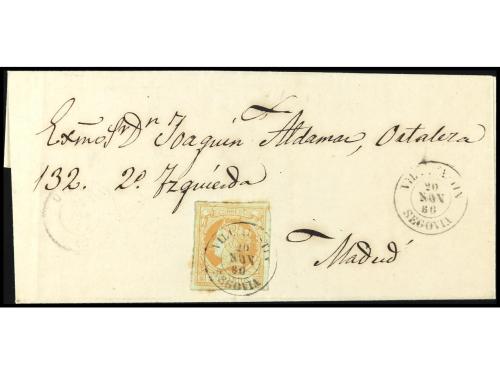 Exmo Sr Dn Joaquín Aldamar, Ortaleza
132. 2º Izquierda
Madrid
20
NOV
60
SEGOVIA
20
NOV
60
SEGOVIA